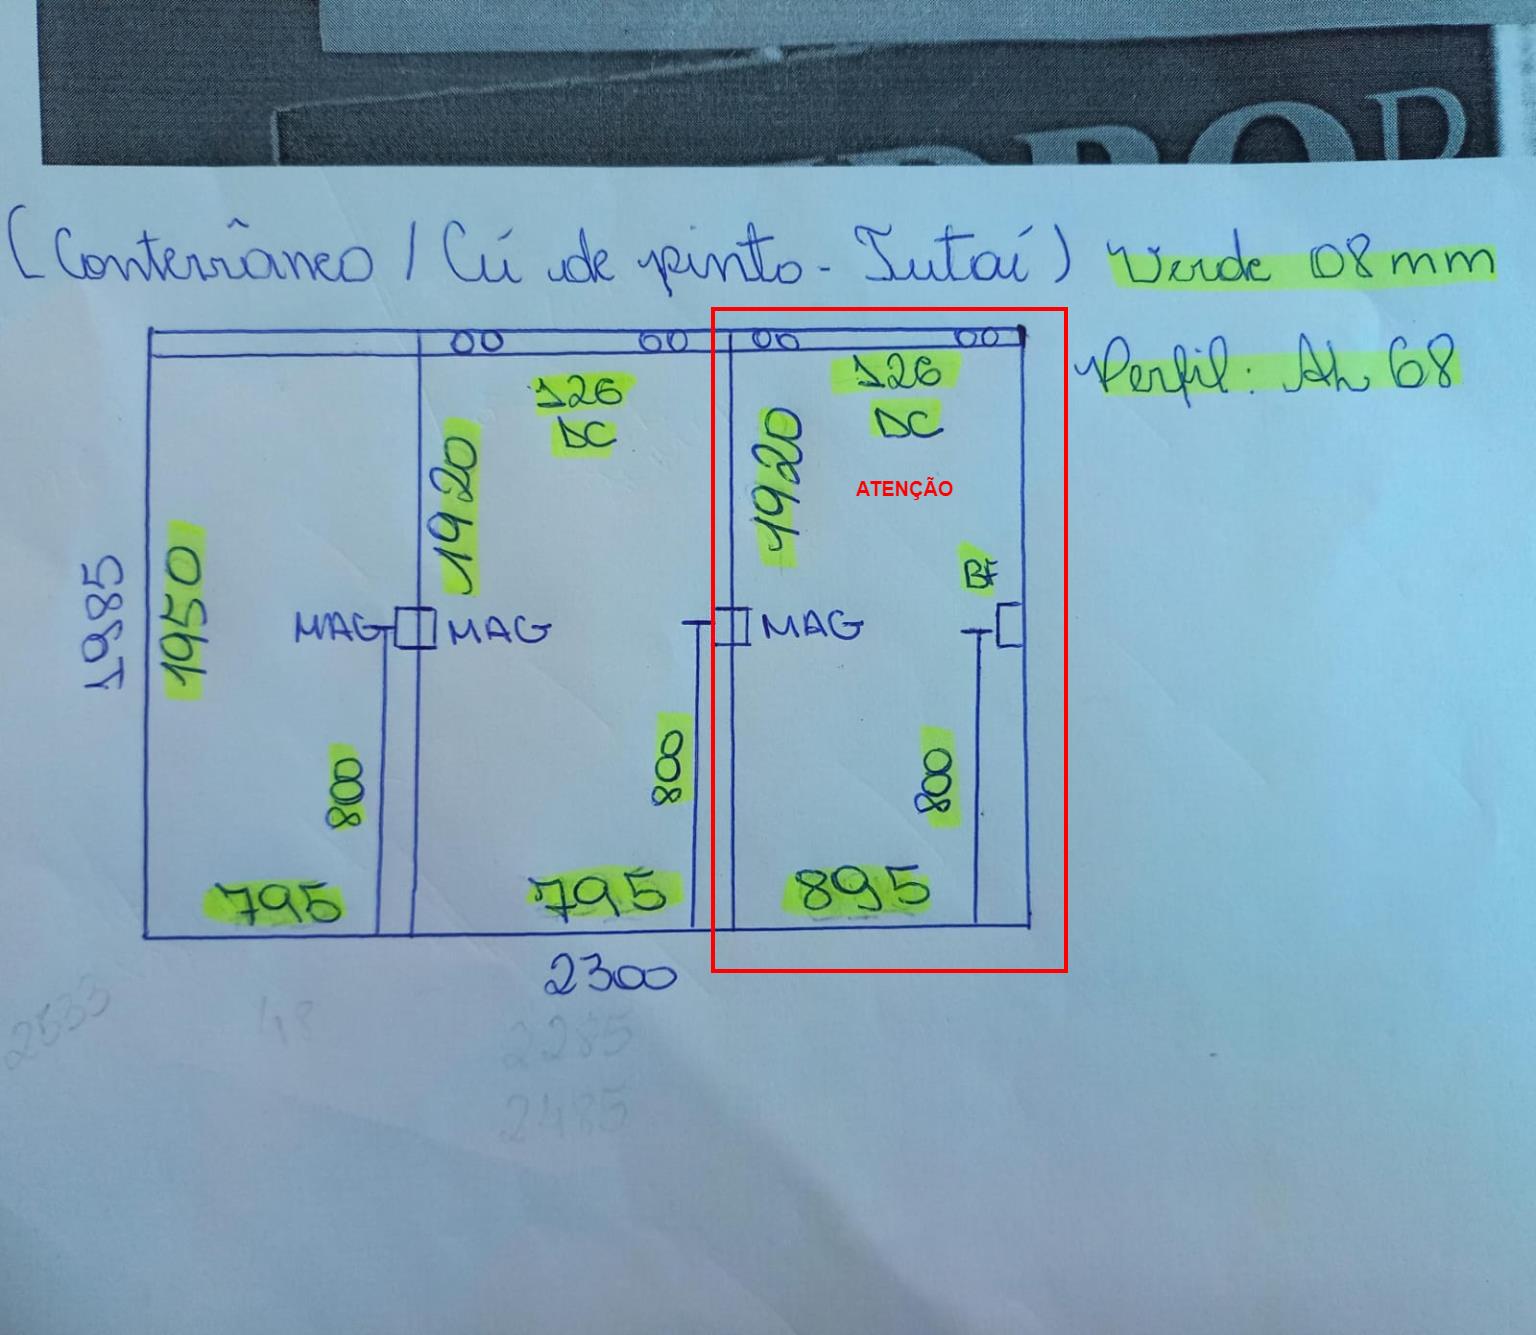 (Conterrâneo / Cú de pinto - Jutaí) Verde 08mm
Perfil: AL 68
126
DC
126
DC
1920
1920
ATENÇÃO
1985
1950
BF
MAG
MAG
MAG
800
800
800
795
795
895
2300
2533
48
2285
2485